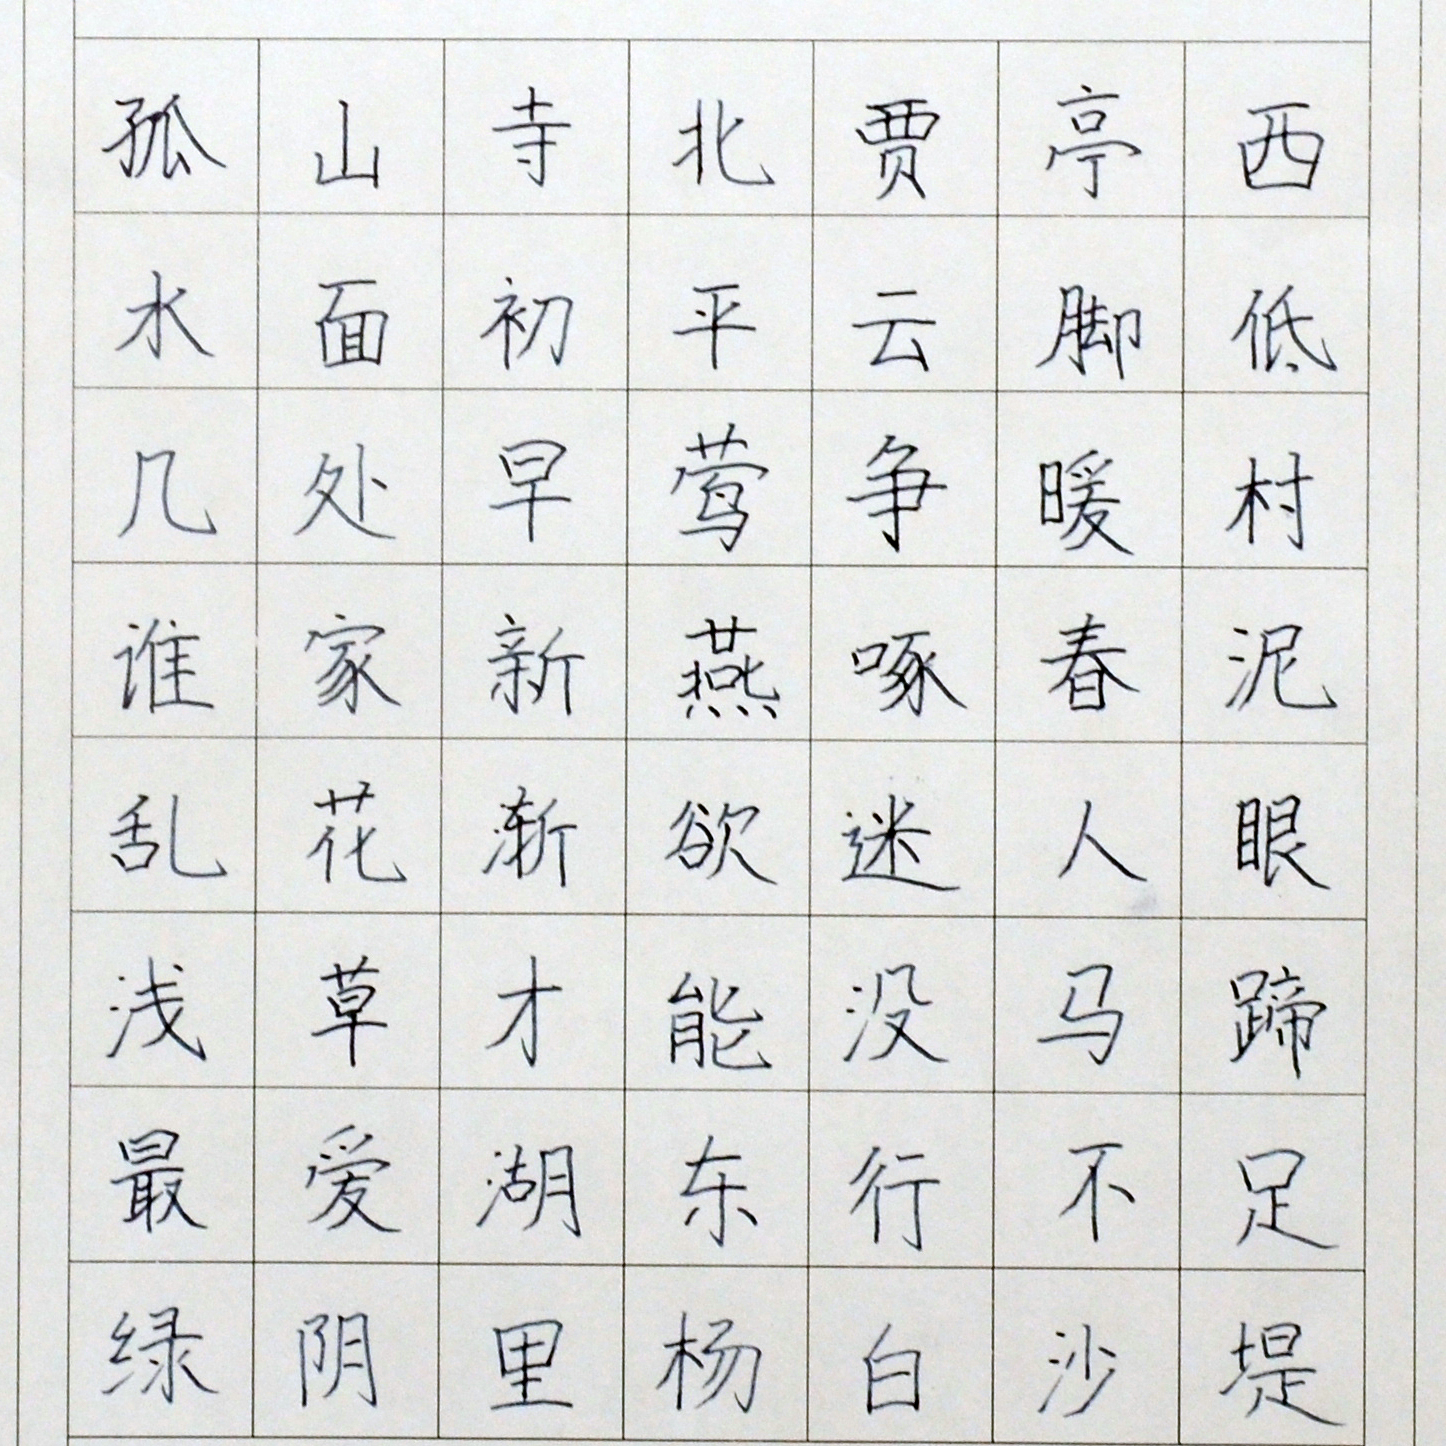 孤山寺北贾亭西
水面初平云脚低
几处早莺争暖村
谁家新燕啄春泥
乱花渐欲迷人眼
浅草才能没马蹄
最爱湖东行不足
绿阴里杨白沙堤